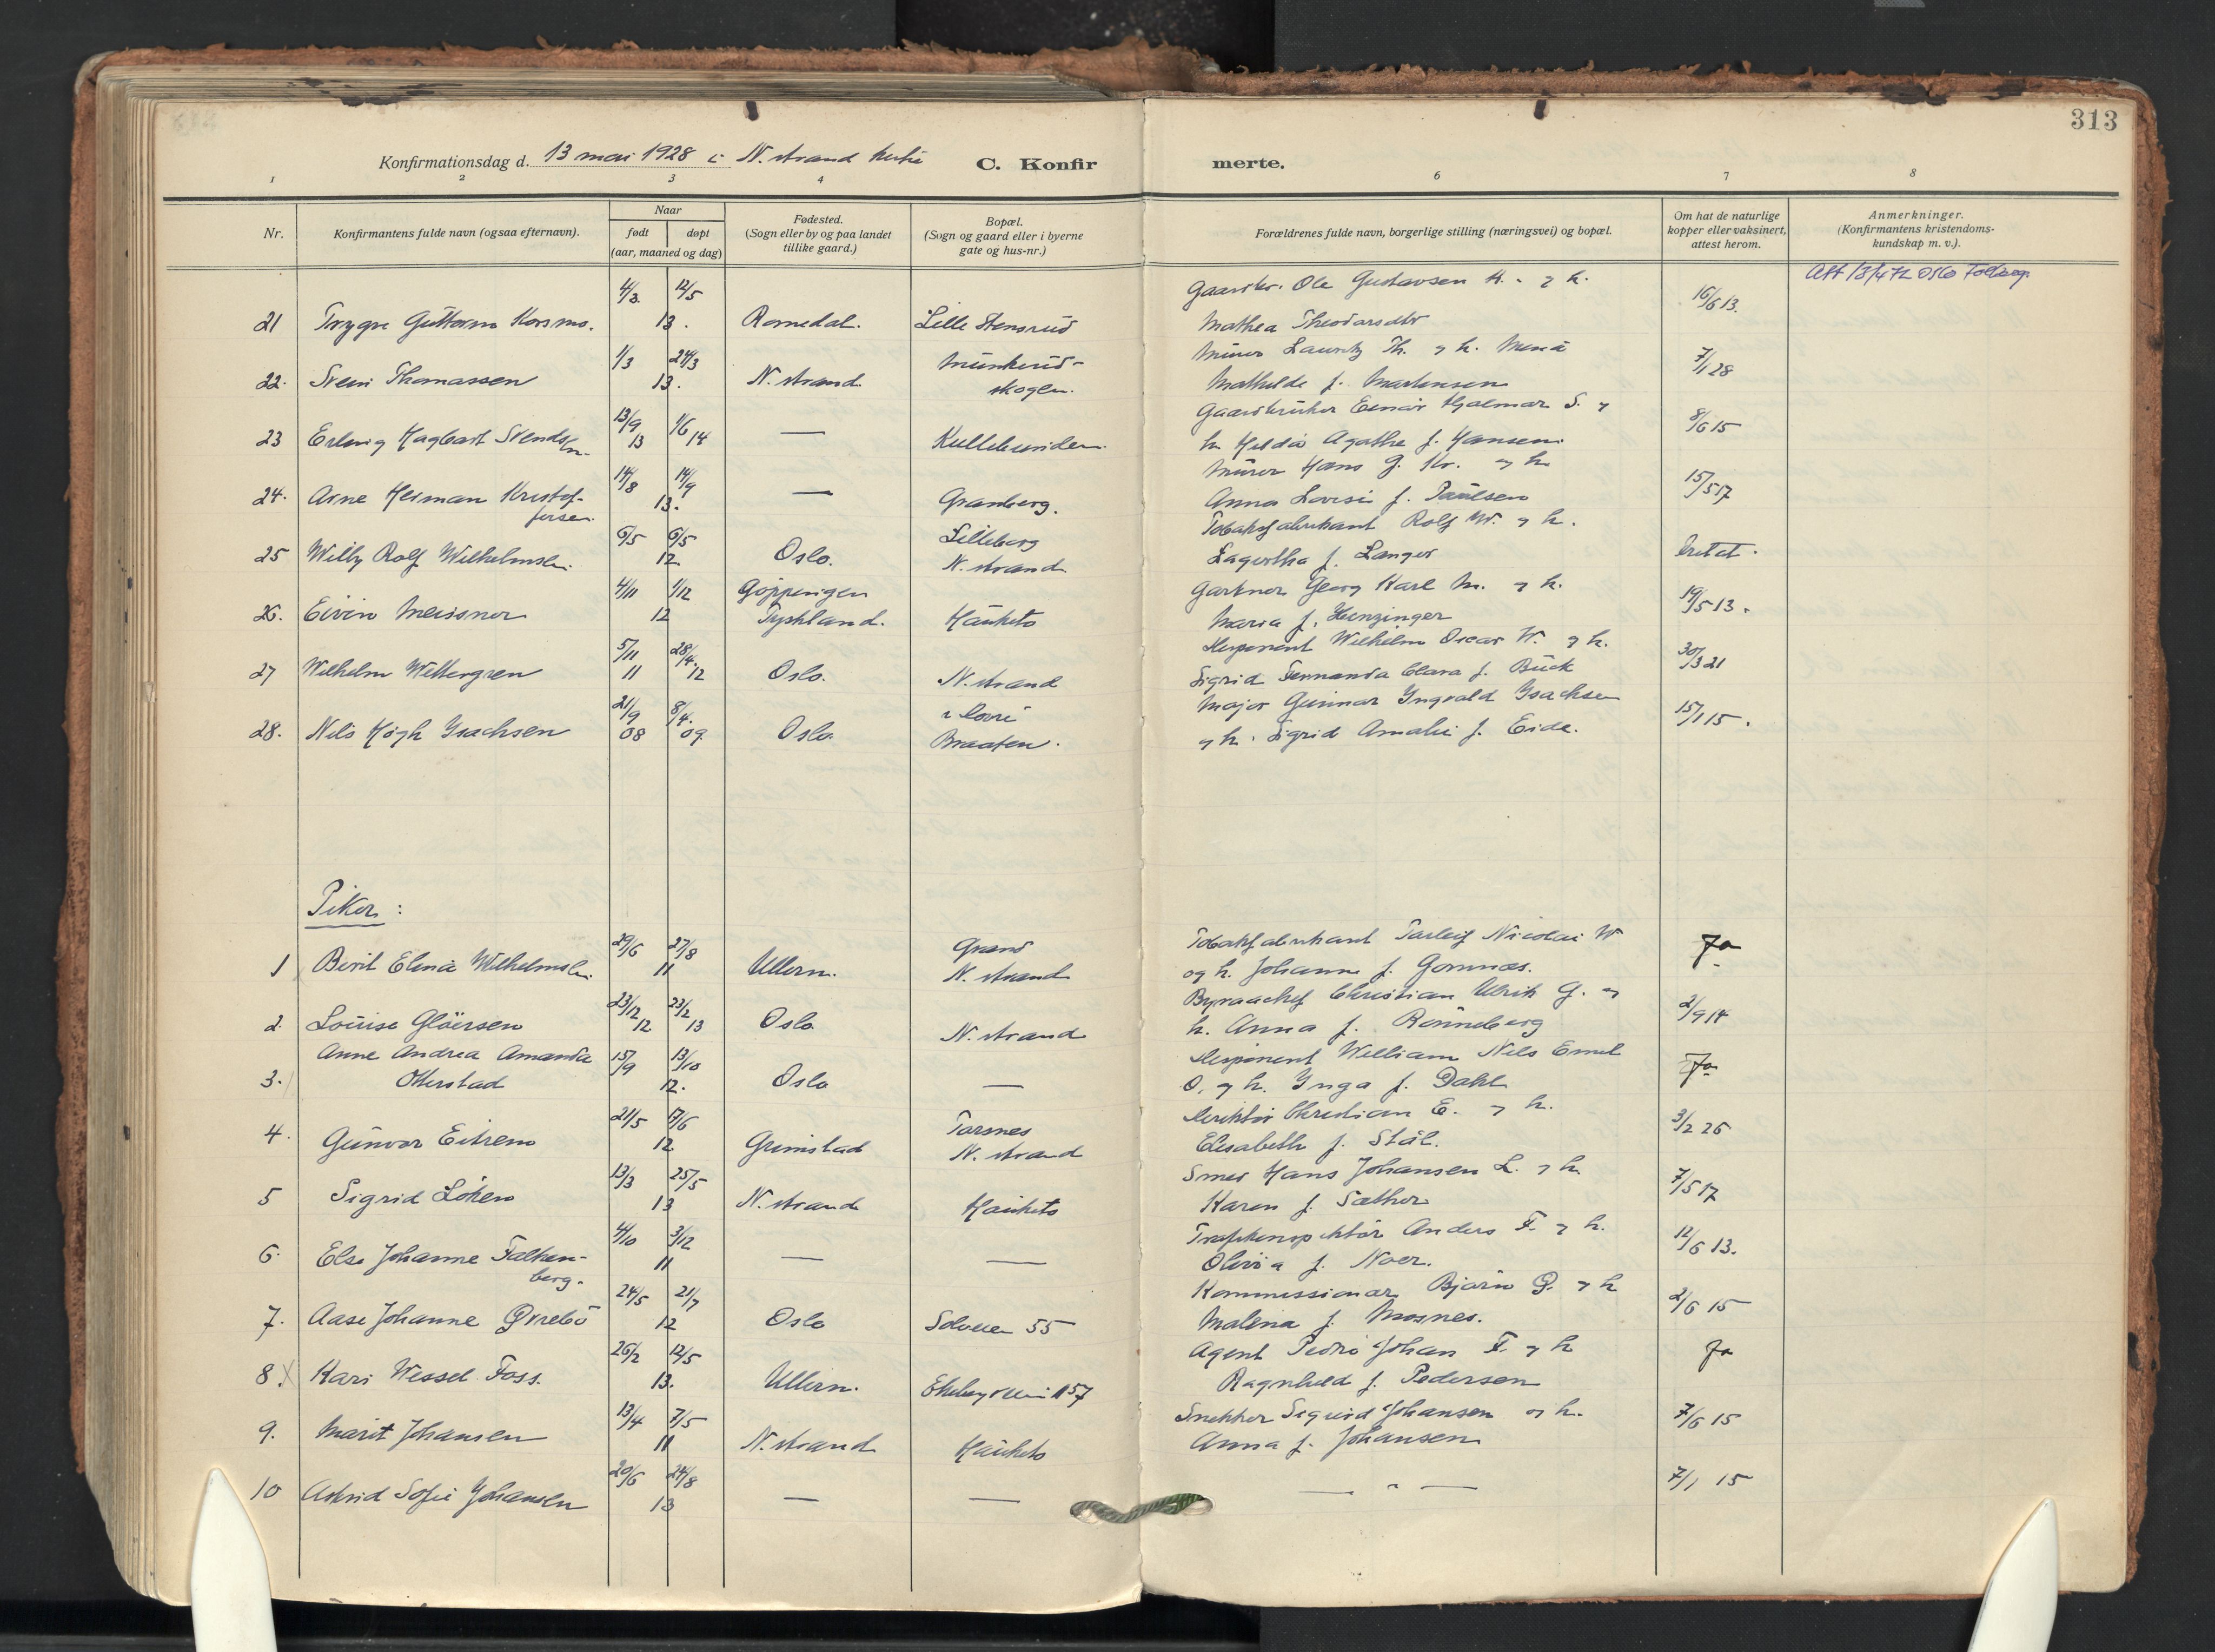 313
Konfirmationsdag d. 13 mai 1928 i N. strand kirke C. Konfirmerte.
1 2 3 4 6 7 8
Nr.
Konfirmantens fulde navn (ogsaa efternavn).
Naar
født døpt
(aar, maaned og dag)
Fødested.
(Sogn eller by og paa landet
tillike gaard.)
Bopæl.
(Sogn og gaard eller i byerne
gate og hus-nr.)
Forældrenes fulde navn, borgerlige stilling (næringsvei) og bopæl.
Om hat de naturlige
kopper eller vaksinert,
attest herom.
Anmerkninger.
(Konfirmantens kristendoms-
kundskap m. v.).
4/3 12/5 Gaardbr. Ole Gustavsen K. og h. 16/6 13. Att 13/4 72 Oslo Folkereg.
21 Trygve Guttorm Korsmo. 13. Romedal. Lille Stensrud Mathea Theodorsdtr
1/3 24/3 Munkerud- Murer Lauritz Th. og h. 7/1 28
22. Svein Thomassen 13. N. strand skogen. Mathilde f. Martinsen
13/9 1/6 Gaardbruker Einar Hjalmar S. og 8/6 15
23 Erling Hagbart Svendsen 13 14 — Kullebunden. h. Hilda Agathe f. Hansen.
14/8 14/9 Murer Hans G. Kr. og h. 15/5 17
24. Arne Herman Kristof- 13. — Granberg. Anna Lovise f. Paulsen
fersen.
6/5 6/5 Lilleberg Tobakfabrikant Rolf W. og h.
25 Willy Rolf Wilhelmsen. 12 Oslo. N. strand Lagertha f. Langer
4/11 1/12 Göppingen Gartner Georg Karl M. og h. 19/5 13.
26. Eivin Meissner 12 Tyskland. Hauketo Maria f. Hunzinger
5/11 28/4 Disponent Wilhelm Oscar W. og h. 30/3 21
27 Wilhelm Wettergren 11 12 Oslo. N. strand Sigrid Fernanda Clara f. Buck
21/9 8/4 Major Gunnar Ingvald Isachsen 15/1 15.
28. Nils Høgh Isachsen 08 09 Oslo. Braaten. og h. Sigrid Amalie f. Eide.
Piker:
29/6 27/8 Grand Tobakfabrikant Tarleif Nicolai W Ja
1 Berit Elina Wilhelmsen. 11 Ullern. N. strand og h. Johanne f. Gomnæs.
23/12 23/2 Byraachef Christian Ulrik G. og 2/9 14
2. Louise Gløersen 12 13 Oslo N. strand h. Anna f. Rønneberg
Anne Andrea Amanda 15/9 13/10 Disponent William Nils Emil Ja
3. Otterstad 12. Oslo — O. og h. Inga f. Dahl
21/5 17/6 Tarsnes Direktør Christian E. og h. 3/2 26
4. Gunvor Eitrem 12 Grimstad N. strand Elisabeth f. Stål.
13/3 25/5 Smed Hans Johansen L. og h. 7/5 17
5 Sigrid Løken 13 N. strand Hauketo Karen f. Sæther
4/10 3/12 Anders F. og h. 12/6 13.
6. Else Johanne Falken- 11 — — Olivia f. Noer.
berg.
24/5 21/7 Kommissionær Bjarne G. og h 2/6 15
7. Aase Johanne Øvrebö 12 Oslo Solveien 55 Malena f. Mosnes.
26/2 12/5 Agent Pedro Johan F. og h Ja
8. Kari Wessel Foss. 13. Ullern. Ekebergveien 157 Ragnhild f. Pedersen
13/4 7/5 Snekker Sigurd Johansen og h. 7/6 15
9. Marit Johansen 11 N. strand Hauketo Anna f. Johansen
20/6 24/8 7/1 15
10 Astrid Sofie Johansen 13 — — — " —